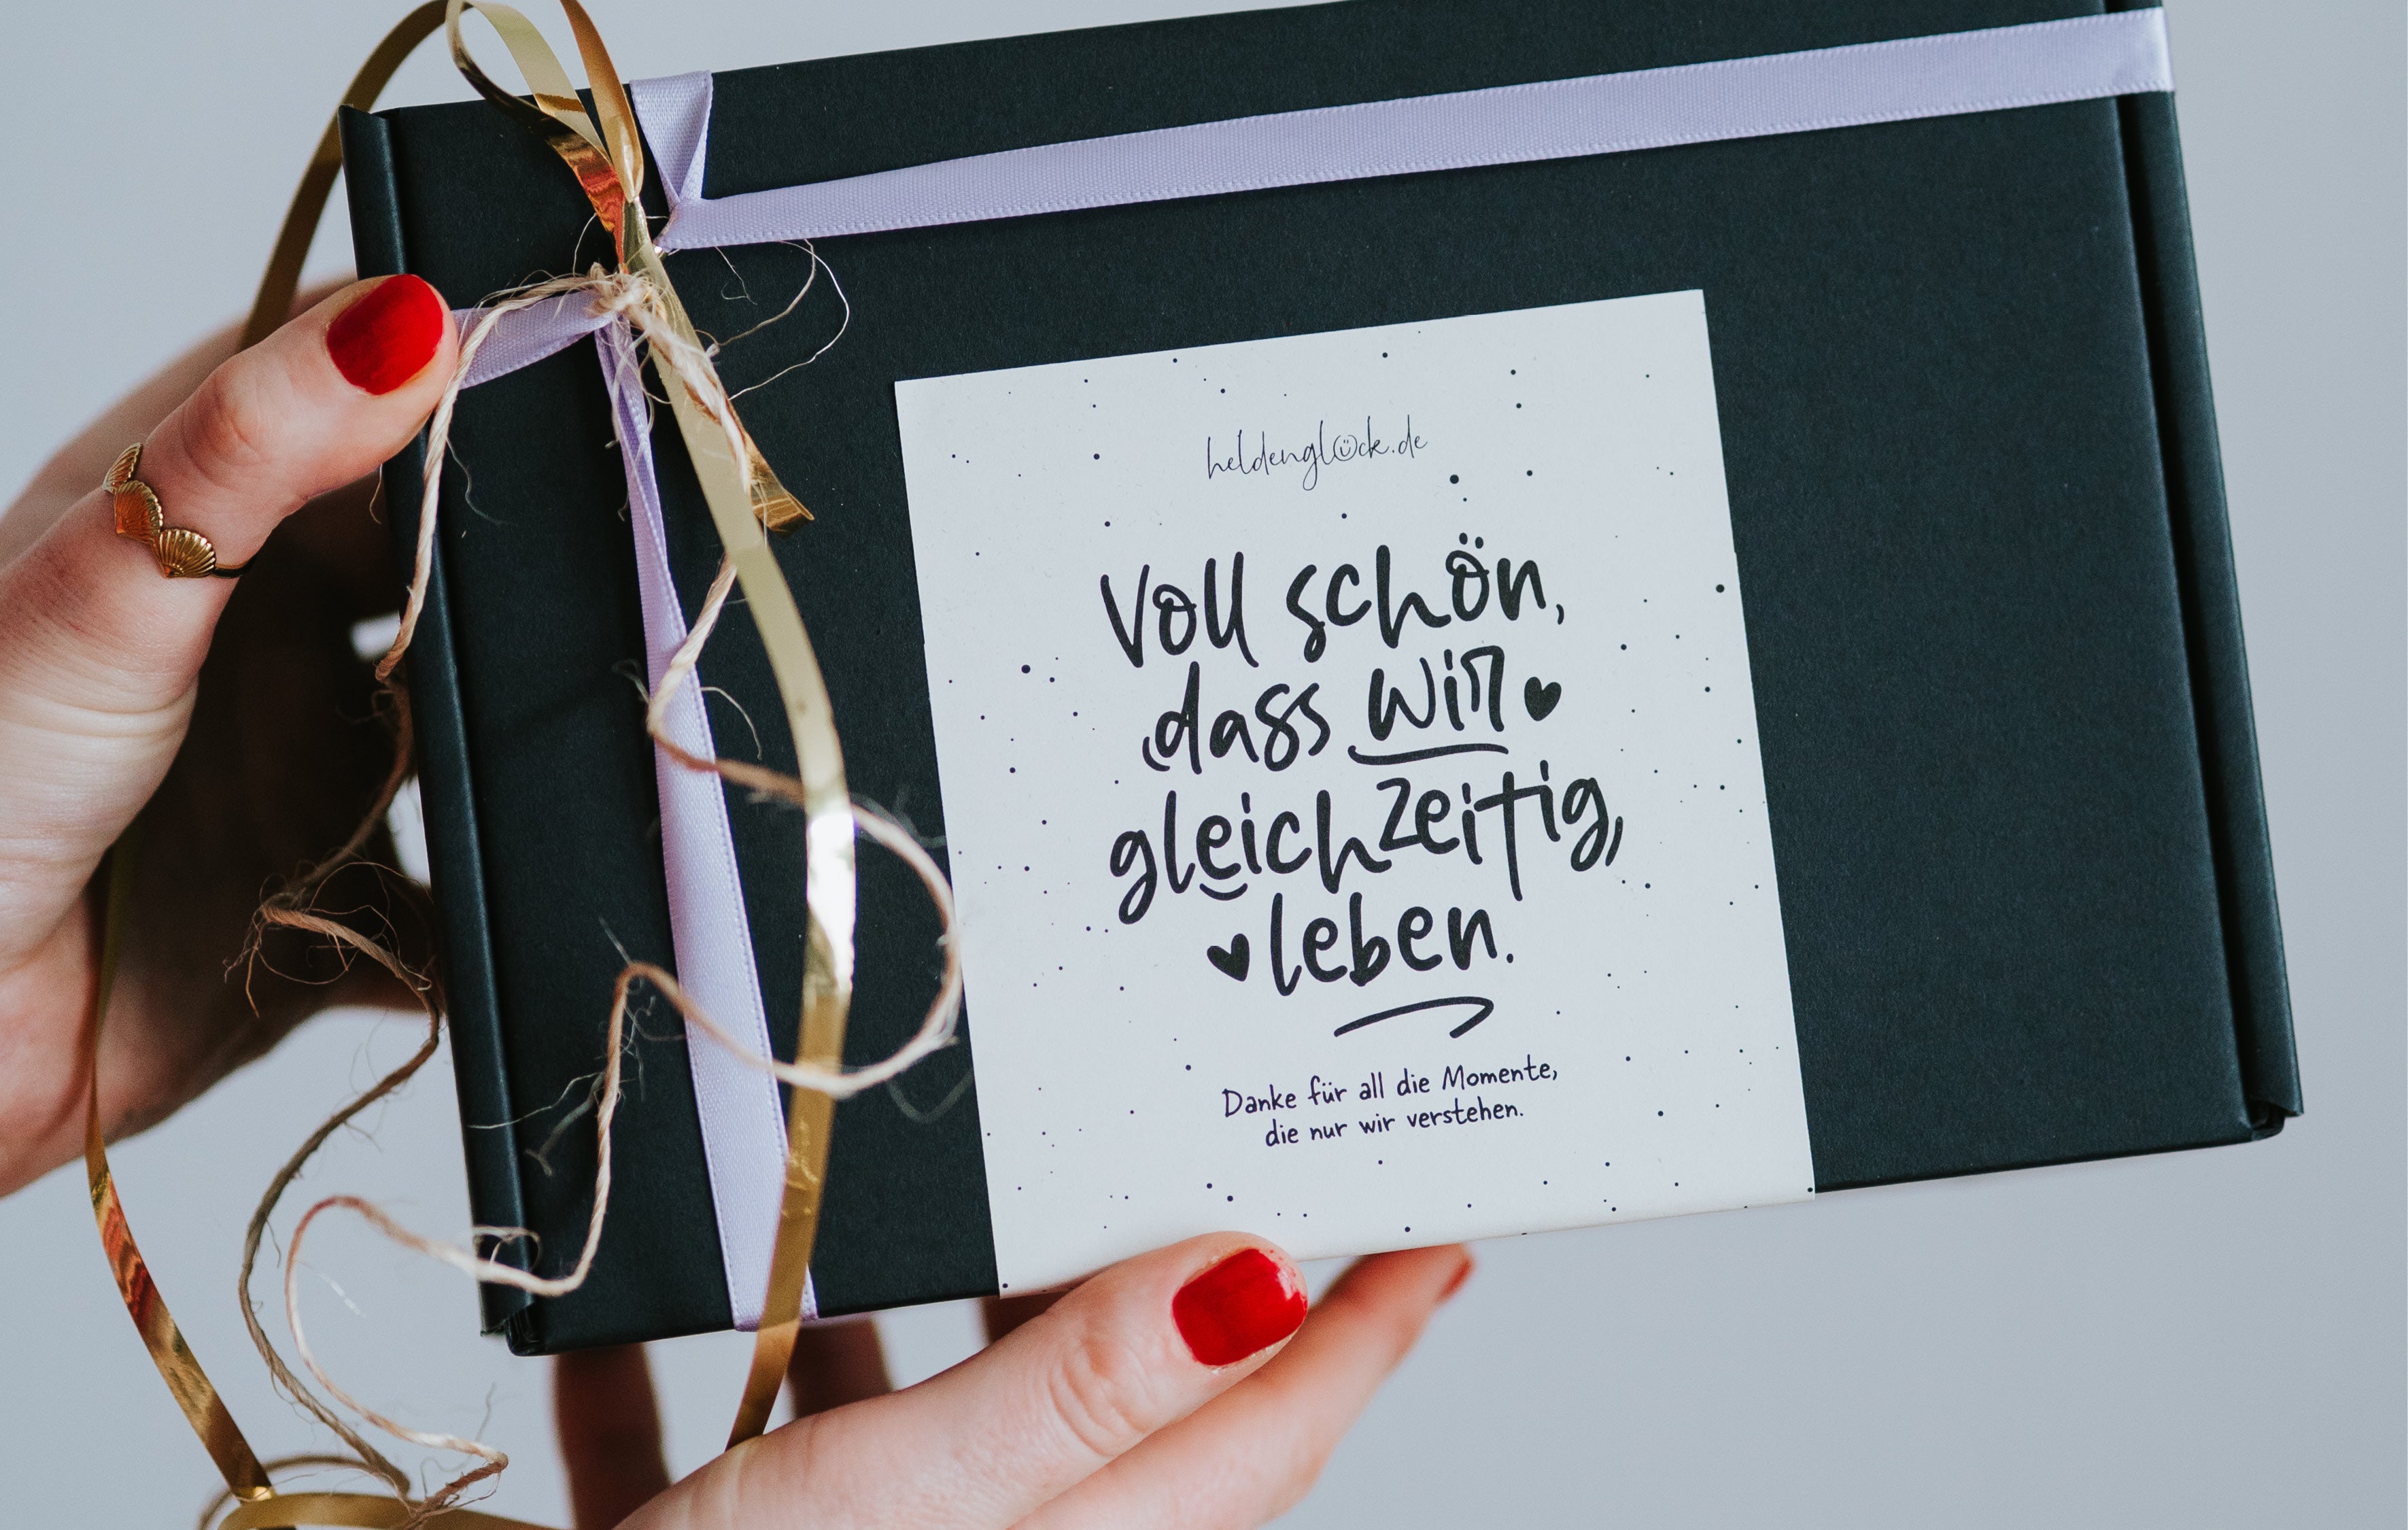 heldenglück.de
Voll schön,
dass wir
gleichzeitig,
leben.
Danke für all die Momente,
die nur wir verstehen.